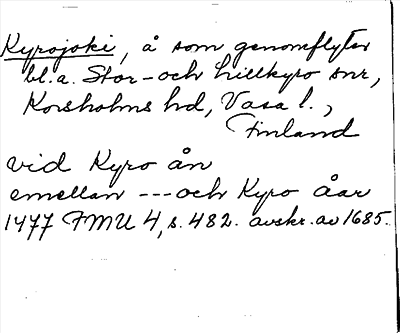 Kyrojoki, å som genomflyter
bl.a. Stor- och Lillkyro snr,
Korsholms hd, Vasa l.,
Finland
vid Kyro ån
emellan --- och Kyro åar
1477 FMU 4, s. 482. avskr. av 1685.